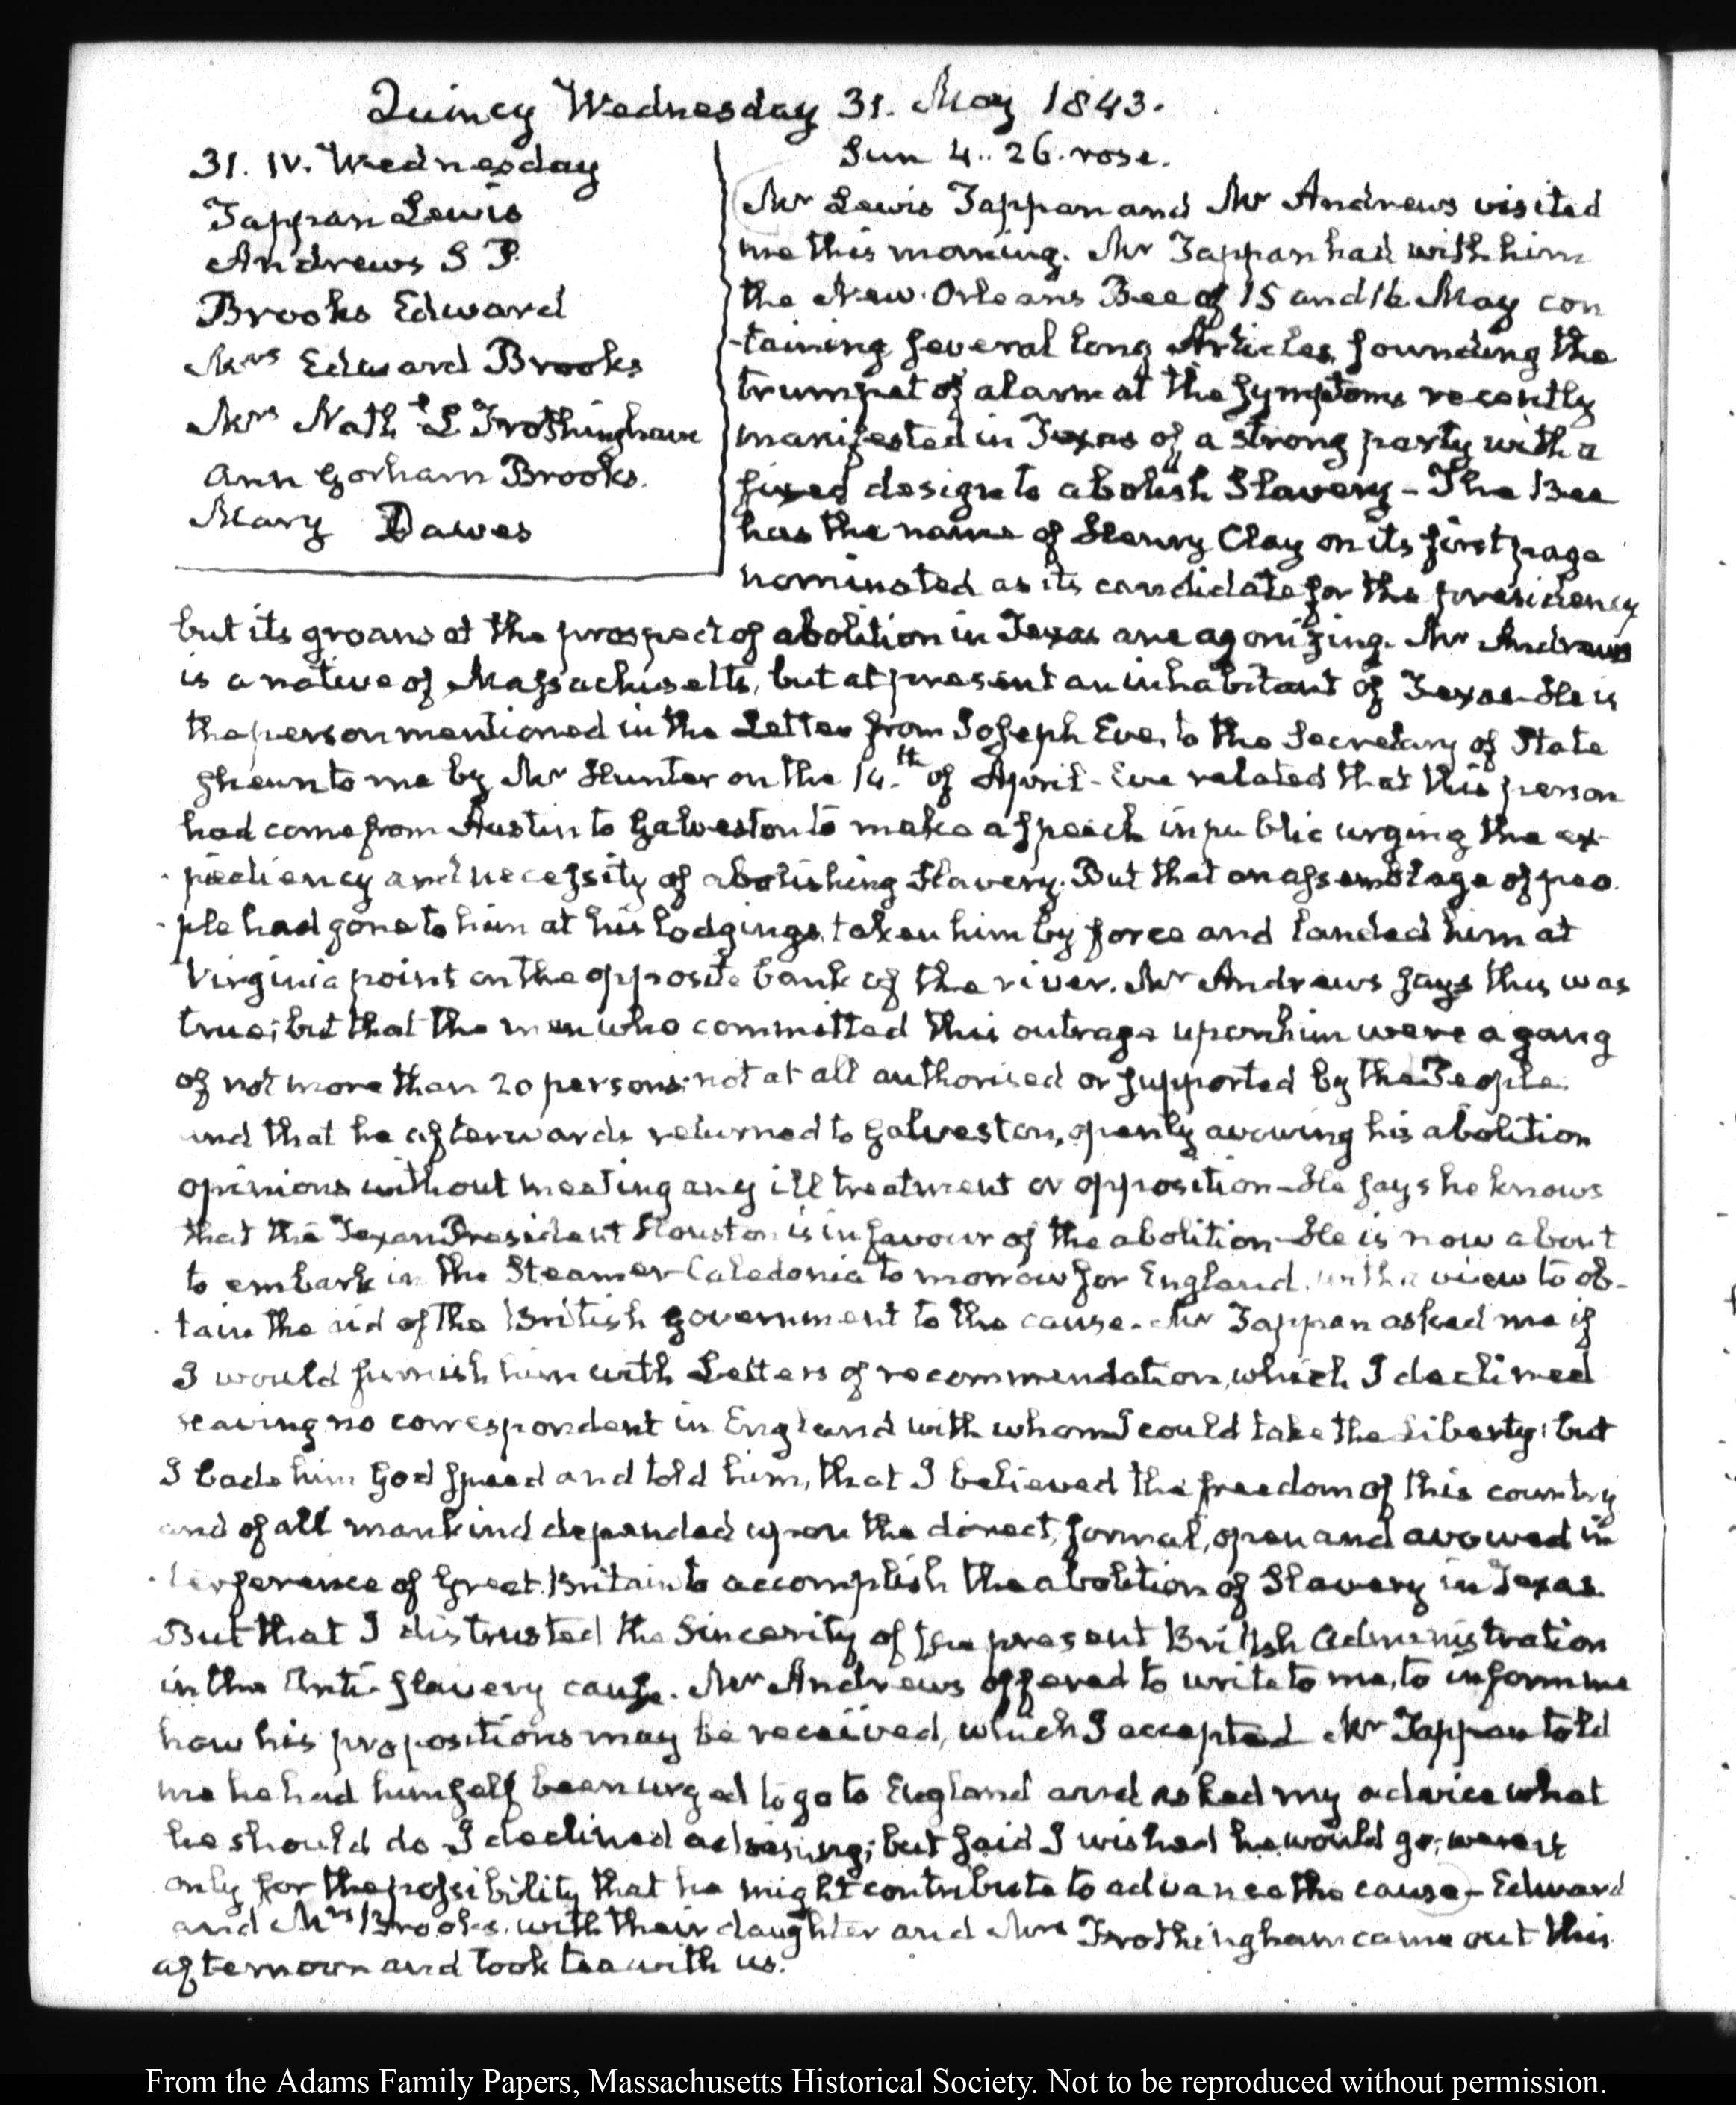 Quincy Wednesday 31. May 1843.
31. IV. Wednesday
Tappan Lewis
Andrews S P.
Brooks Edward
Mrs Edward Brooks
Mrs Nathl L Frothingham
Ann Gorham Brooks.
Mary Dawes
Sun 4..26. rose.
Mr Lewis Tappan and Mr Andrews visited
me this morning. Mr Tappan had with him
the New-Orleans Bee of 15 and 16 May con
-taining several long Articles, sounding the
trumpet of alarm at the symptoms recently
manifested in Texas of a strong party with a
fixed design to abolish Slavery - The Bee
has the name of Henry Clay on its first page
nominated as its candidate for the presidency
but its groans at the prospect of abolition in Texas are agonizing. Mr Andrews
is a native of Massachusetts, but at present an inhabitant of Texas - He is
the person mentioned in the Letter from Joseph Eve, to the Secretary of State
shewn to me by Mr Hunter on the 14th. of April - Eve related that this person
had come from Austin to Galveston to make a speech in public urging the ex-
-pediency and necessity of abolishing Slavery. But that an assemblage of peo
-ple had gone to him at his lodgings, taken him by force and landed him at
Virginia point on the opposite bank of the river. Mr Andrews says this was
true; but that the men who committed this outrage upon him were a gang
of not more than 20 persons, not at all authorised or supported by the People.
and that he afterwards returned to Galveston, openly avowing his abolition
opinions without meeting any ill treatment or opposition - He says he knows
that the Texan President Houston is in favour of the abolition - He is now about
to embark in the Steamer Caledonia to morrow for England, with a view to ob-
-tain the aid of the British government to the cause. Mr Tappan asked me if
I would furnish him with Letters of recommendation, which I declined
having no correspondent in England with whom I could take the liberty: but
I bade him God speed and told him, that I believed the freedom of this country
and of all mankind depended upon the direct, formal, open and avowed in
-terference of Great-Britain to accomplish the abolition of Slavery in Texas
But that I distrusted the Sincerity of the present British Administration
in the Anti-Slavery cause. Mr Andrews offered to write to me, to inform me
how his propositions may be received, which I accepted Mr Tappan told
me he had himself been urged to go to England and asked my advice what
he should do I declined advising; but said I wished he would go; were it
only for the possibility that he might contribute to advance the cause - Edward
and Mrs Brooks, with their daughter and Mrs Frothingham came out this
afternoon and took tea with us.
From the Adams Family Papers, Massachusetts Historical Society. Not to be reproduced without permission.